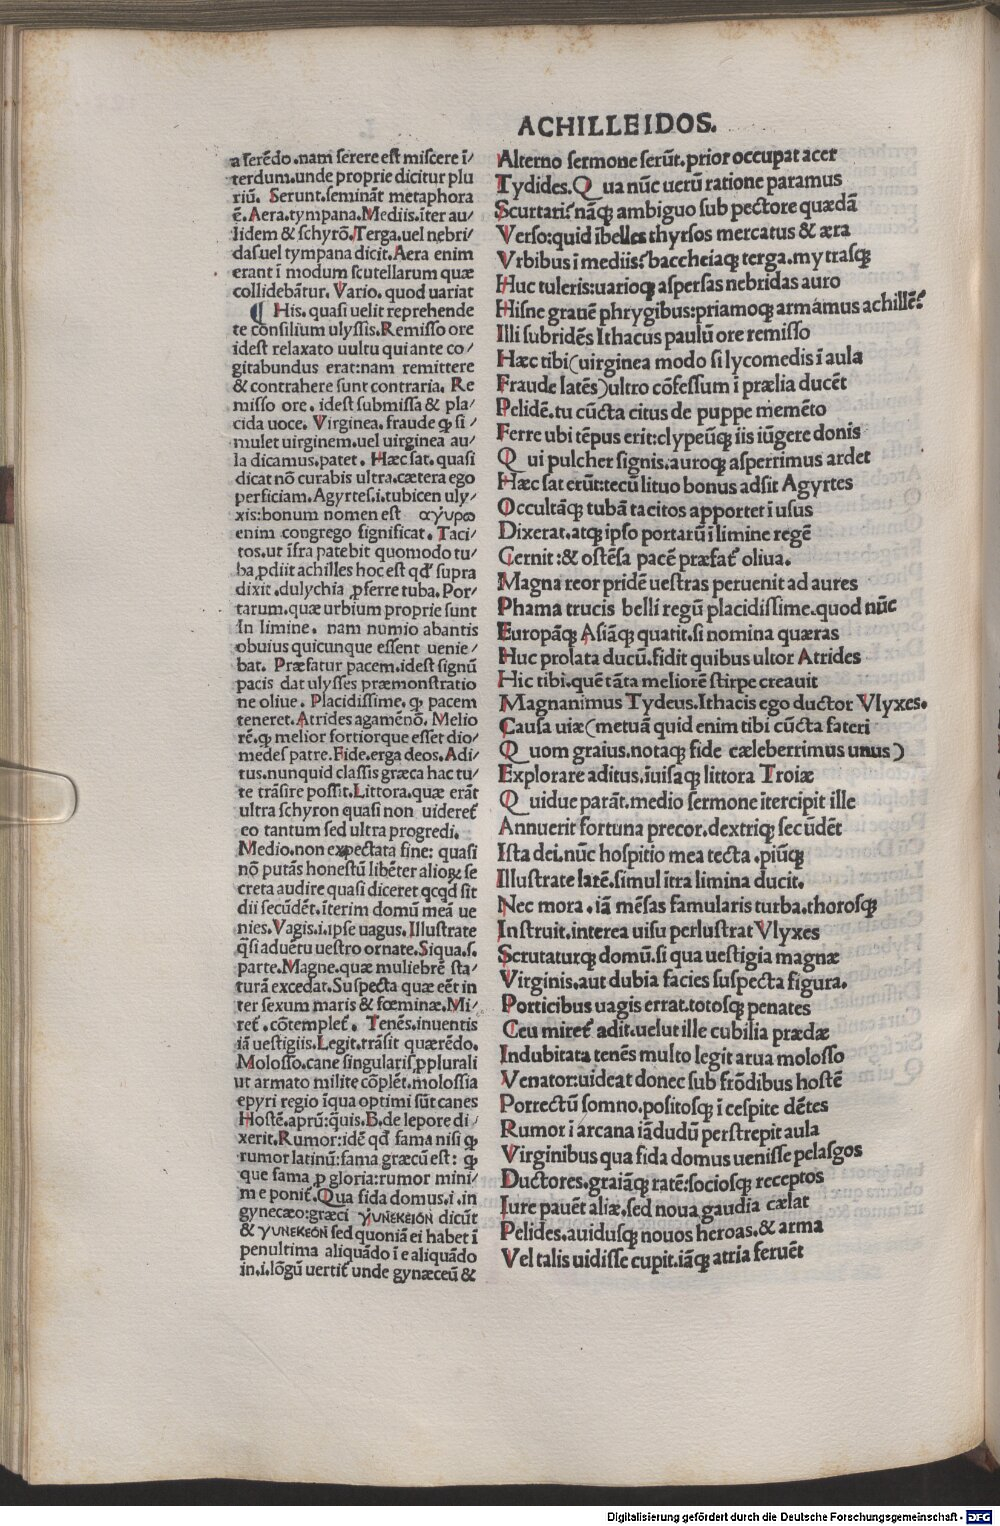 ACHILLEIDOS.
a serēdo.nam serere est miscere ī/
terdum.unde proprie dicitur plu
riū. Serunt.semināt metaphora
ē. Aera.tympana.Mediis.īter au/
lidem & schyrō.Terga.uel nebri/
das uel tympana dicit.Aera enim
erant ī modum scutellarum quæ
collidebātur. Vario. quod uariat
¶ His. quasi uelit reprehende
te cōsilium ulyssis.Remisso ore
idest relaxato uultu qui ante co/
gitabundus erat:nam remittere
& contrahere sunt contraria. Re
misso ore. idest submissa & pla/
cida uoce. Virginea.fraude ꝙ si/
mulet uirginem.uel uirginea au/
la dicamus.patet. Hæc sat. quasi
dicat nō curabis ultra.cætera ego
perficiam. Agyrtes.i.tubicen uly/
xis:bonum nomen est αγυρω
enim congrego significat. Taci/
tos.ut īfra patebit quomodo tu/
ba ꝓdiit achilles hoc est qđ supra
dixit.dulychia ꝓferre tuba. Por/
tarum.quæ urbium proprie sunt
In limine. nam numio abantis
obuius quicunque essent uenie/
bat. Præfatur pacem.idest signū
pacis dat ulysses præmonstratio
ne oliue. Placidissime. ꝙ pacem
teneret.Atrides agamēnō. Melio
rē.ꝙ melior fortiorque esset dio/
medes patre.Fide.erga deos.Adi/
tus.nunquid classis græca hac tu/
te trāsire possit.Littora.quæ erāt
ultra schyron quasi non uideret᷑
eo tantum sed ultra progredi.
Medio.non expectata fine: quasi
nō putās honestū libēter alioꝝ se
creta audire quasi diceret qcqd sit
dii secūdēt.īterim domū meā ue
nies.Vagis.i.ipse uagus.Illustrate
q̄si aduētu uestro ornate.Siqua.s.
parte.Magne.quæ muliebrē sta/
turā excedat.Suspecta quæ eēt in
ter sexum maris & fœminæ.Mi/
ret᷑.cōtemplet᷑. Tenēs.inuentis
iā uestigiis.Legit.trāsit quærēdo.
Molosso.cane singularis ꝓ plurali
ut armato milite cōplēt.molossia
epyri regio īqua optimi sūt canes
Hostē.aprū:q̄uis.B.de lepore di/
xerit.Rumor:idē qđ fama nisi ꝙ
rumor latinū:fama græcū est: ꝙ
que fama ꝓ gloria:rumor mini/
me ponit᷑.Qua fida domus.i.in
gynecæo:græci γυnεκειοn dicūt
& γυnεκεοn sed quoniā ei habet ī
penultima aliquādo ī e aliquādo
in.i.lōgū uertit᷑ unde gynæceū &
Alterno sermone serūt.prior occupat acer
Tydides.Q ua nūc uerū ratione paramus
Scurtari?nāqꝫ ambiguo sub pectore quædā
Verso:quid ībelles thyrsos mercatus & æra
Vrbibus ī mediis?baccheiaqꝫ terga.mytrasqꝫ
Huc tuleris:uarioqꝫ aspersas nebridas auro
Hisne grauē phrygibus:priamoqꝫ armamus achillē?
Illi subridēs Ithacus paulū ore remisso
Hæc tibi(uirginea modo si lycomedis ī aula
Fraude latēs)ultro cōfessum ī prælia ducēt
Pelidē.tu cūcta citus de puppe memēto
Ferre ubi tēpus erit:clypeūqꝫ iis iūgere donis
Q ui pulcher signis.auroqꝫ asperrimus ardet
Hæc sat erūt:tecū lituo bonus adsit Agyrtes
Occultāqꝫ tubā tacitos apportet ī usus
Dixerat.atqꝫ ipso portarū ī limine regē
Cernit:& ostēsa pacē præfat᷑ oliua.
Magna reor pridē uestras peruenit ad aures
Phama trucis belli regū placidissime.quod nūc
Europāqꝫ Asiāqꝫ quatit.si nomina quæras
Huc prolata ducū.fidit quibus ultor Atrides
Hic tibi.quē tāta meliorē stirpe creauit
Magnanimus Tydeus.Ithacis ego ductor Vlyxes.
Causa uiæ(metuā quid enim tibi cūcta fateri
Q uom graius.notaqꝫ fide cæleberrimus unus)
Explorare aditus.īuisaqꝫ littora Troiæ
Q uidue parāt.medio sermone ītercipit ille
Annuerit fortuna precor.dextriqꝫ secūdēt
Ista dei.nūc hospitio mea tecta.piūqꝫ
Illustrate larē.simul ītra limina ducit.
Nec mora.iā mēsas famularis turba.thorosqꝫ
Instruit.interea uisu perlustrat Vlyxes
Scrutaturqꝫ domū.si qua uestigia magnæ
Virginis.aut dubia facies suspecta figura.
Porticibus uagis errat.totosqꝫ penates
Ceu miret᷑ adit.uelut ille cubilia prædæ
Indubitata tenēs multo legit arua molosso
Venator:uideat donec sub frōdibus hostē
Porrectū somno.positosqꝫ ī cespite dētes
Rumor ī arcana iādudū perstrepit aula
Virginibus qua fida domus uenisse pelasgos
Ductores.graiāqꝫ ratē:sociosqꝫ receptos
Iure pauēt aliæ.sed noua gaudia cælat
Pelides.auidusqꝫ nouos heroas.& arma
Vel talis uidisse cupit.iāqꝫ atria feruēt
Digitalisierung gefördert durch die Deutsche Forschungsgemeinschaft - DFG